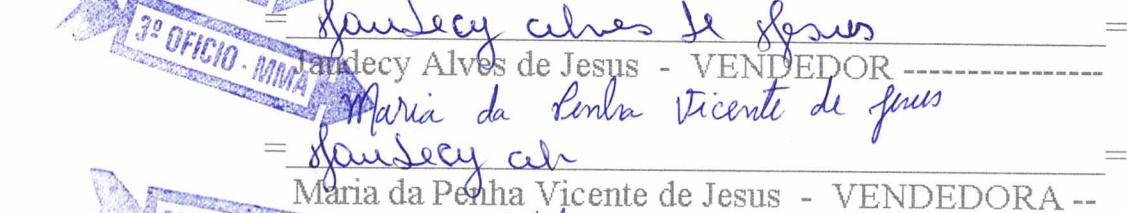 3º OFICIO - MMA
= Jaudecy alves de Jesus =
Jaudecy Alves de Jesus - VENDEDOR ---------------
Maria da Penha Vicente de Jesus
= Jaudecy alv =
Maria da Penha Vicente de Jesus - VENDEDORA --